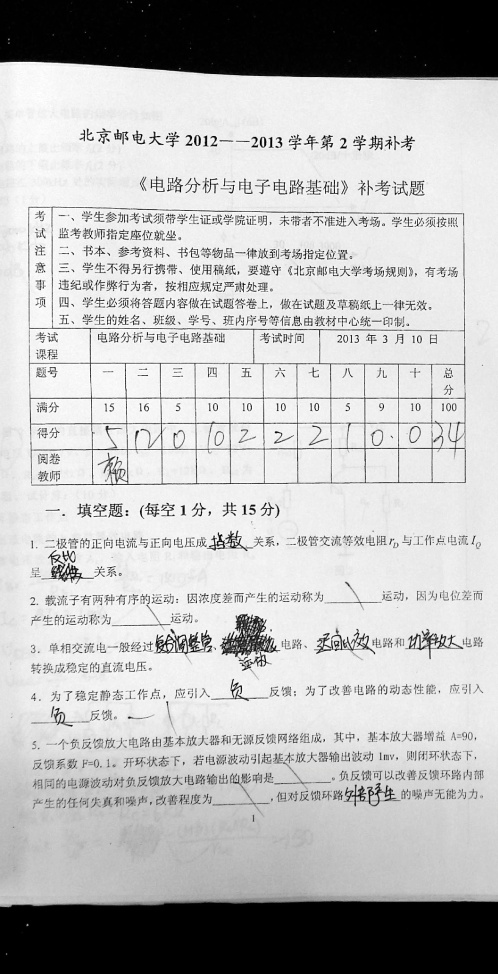 北京邮电大学 2012——2013 学年第 2 学期补考
《电路分析与电子电路基础》补考试题
考试注意事项
一、学生参加考试须带学生证或学院证明，未带者不准进入考场。学生必须按照
监考教师指定座位就坐。
二、书本、参考资料、书包等物品一律放到考场指定位置。
三、学生不得另行携带、使用稿纸，要遵守《北京邮电大学考场规则》，有考场
违纪或作弊行为者，按相应规定严肃处理。
四、学生必须将答题内容做在试题答卷上，做在试题及草稿纸上一律无效。
五、学生的姓名、班级、学号、班内序号等信息由教材中心统一印制。
考试课程 电路分析与电子电路基础 考试时间 2013 年 3 月 10 日
题号 一 二 三 四 五 六 七 八 九 十 总分
满分 15 16 5 10 10 10 10 5 9 10 100
得分 5 12 0 10 2 2 2 1 0 0 34
阅卷教师
一．填空题：(每空 1 分，共 15 分)
1. 二极管的正向电流与正向电压成 指数 关系，二极管交流等效电阻 rD 与工作点电流 IQ
呈 反比 关系。
2. 载流子有两种有序的运动：因浓度差而产生的运动称为 运动，因为电位差而
产生的运动称为 运动。
3. 单相交流电一般经过 电路、 电路和 功率放大 电路
转换成稳定的直流电压。
4. 为了稳定静态工作点，应引入 负 反馈；为了改善电路的动态性能，应引入
负 反馈。
5. 一个负反馈放大电路由基本放大器和无源反馈网络组成，其中，基本放大器增益 A=90，
反馈系数 F=0.1。开环状态下，若电源波动引起基本放大器输出波动 1mv，则闭环状态下，
相同的电源波动对负反馈放大电路输出的影响是 。负反馈可以改善反馈环路内部
产生的任何失真和噪声，改善程度为 ，但对反馈环路 外部产生 的噪声无能为力。
1